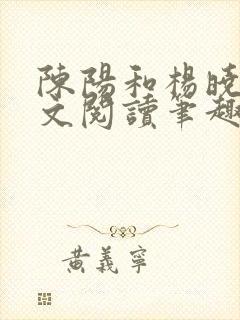 陳陽和楊曉
文閱讀筆趣
黃義寧